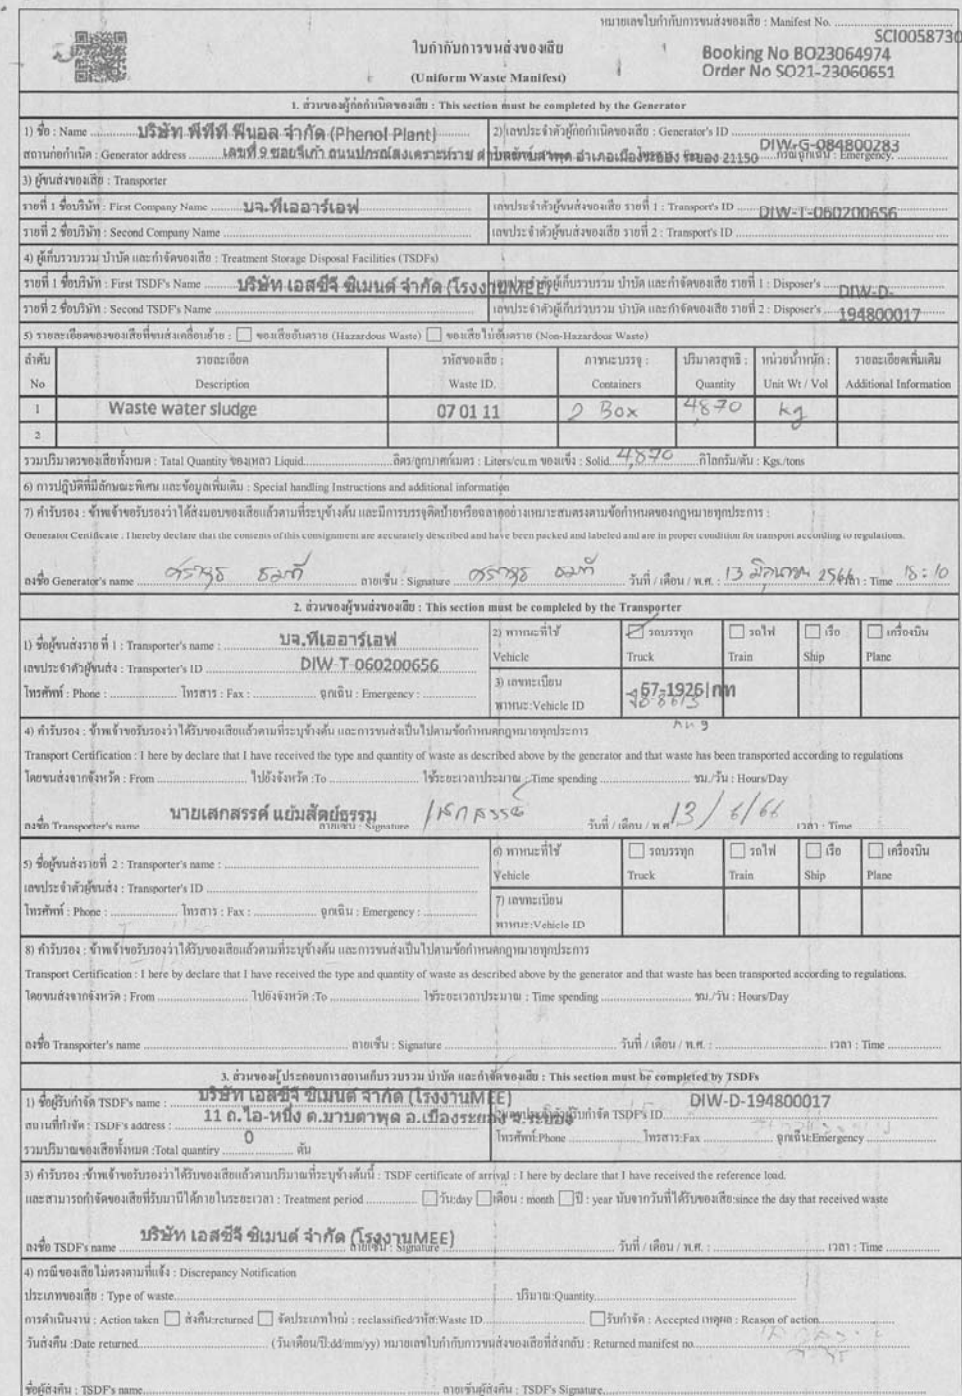 หมายเลขใบกำกับการขนส่งของเสีย : Manifest No. ....................
SCI0058730
ใบกำกับการขนส่งของเสีย
Booking No BO23064974
(Uniform Waste Manifest)
Order No SO21-23060651
1. ส่วนของผู้ก่อกำเนิดของเสีย : This section must be completed by the Generator
1) ชื่อ : Name บริษัท พีทีที ฟีนอล จำกัด (Phenol Plant) 2) เลขประจำตัวผู้ก่อกำเนิดของเสีย : Generator's ID DIW-G-084800283
สถานก่อกำเนิด : Generator address เลขที่ 9 ซอยจีเก้า ถนนปกรณ์สงเคราะห์ราษ อำเภอเมืองระยอง ระยอง 21150 กรณีฉุกเฉิน : Emergency
3) ผู้ขนส่งของเสีย : Transporter
รายที่ 1 ชื่อบริษัท : First Company Name บจ.ทีเออาร์เอฟ เลขประจำตัวผู้ขนส่งของเสีย รายที่ 1 : Transport's ID DIW-T-060200656
รายที่ 2 ชื่อบริษัท : Second Company Name เลขประจำตัวผู้ขนส่งของเสีย รายที่ 2 : Transport's ID
4) ผู้เก็บรวบรวม บำบัด และกำจัดของเสีย : Treatment Storage Disposal Facilities (TSDFs)
รายที่ 1 ชื่อบริษัท : First TSDF's Name บริษัท เอสซีจี ซิเมนต์ จำกัด (โรงงานMEE) ผู้เก็บรวบรวม บำบัด และกำจัดของเสีย รายที่ 1 : Disposer's DIW-D-
รายที่ 2 ชื่อบริษัท : Second TSDF's Name เลขประจำตัวผู้เก็บรวบรวม บำบัด และกำจัดของเสีย รายที่ 2 : Disposer's 194800017
5) รายละเอียดของของเสียที่ขนส่งเคลื่อนย้าย : ของเสียอันตราย (Hazardous Waste) ของเสียไม่อันตราย (Non-Hazardous Waste)
ลำดับ รายละเอียด รหัสของเสีย : ภาชนะบรรจุ : ปริมาตรสุทธิ : หน่วยน้ำหนัก : รายละเอียดเพิ่มเติม
No Description Waste ID. Containers Quantity Unit Wt / Vol Additional Information
1 Waste water sludge 07 01 11 2 Box 4,870 kg
2
รวมปริมาตรของเสียทั้งหมด : Tatal Quantity ของเหลว Liquid ลิตร/ลูกบาศก์เมตร : Liters/cu.m ของแข็ง : Solid 4,870 กิโลกรัม/ตัน : Kgs./tons
6) การปฏิบัติที่มีลักษณะพิเศษ และข้อมูลเพิ่มเติม : Special handling Instructions and additional information
7) คำรับรอง : ข้าพเจ้าขอรับรองว่าได้ส่งมอบของเสียแล้วตามที่ระบุข้างต้น และมีการบรรจุติดป้ายหรือฉลากอย่างเหมาะสมตรงตามข้อกำหนดของกฎหมายทุกประการ :
Generator Certificate : I hereby declare that the contents of this consignment are accurately described and have been packed and labeled and are in proper condition for transport according to regulations.
ลงชื่อ Generator's name ลายเซ็น : Signature วันที่ / เดือน / พ.ศ. : 13 มิถุนายน 2566 : Time
2. ส่วนของผู้ขนส่งของเสีย : This section must be compleled by the Transporter
1) ชื่อผู้ขนส่งราย ที่ 1 : Transporter's name : บจ.ทีเออาร์เอฟ 2) พาหนะที่ใช้ รถบรรทุก รถไฟ เรือ เครื่องบิน
เลขประจำตัวผู้ขนส่ง : Transporter's ID DIW-T-060200656 Vehicle Truck Train Ship Plane
โทรศัพท์ : Phone : โทรสาร : Fax : ฉุกเฉิน : Emergency : 3) เลขทะเบียน พาหนะ:Vehicle ID 67-1926|กท
4) คำรับรอง : ข้าพเจ้าขอรับรองว่าได้รับของเสียแล้วตามที่ระบุข้างต้น และการขนส่งเป็นไปตามข้อกำหนดกฎหมายทุกประการ
Transport Certification : I here by declare that I have received the type and quantity of waste as described above by the generator and that waste has been transported according to regulations
โดยขนส่งจากจังหวัด : From ไปยังจังหวัด :To ใช้ระยะเวลาประมาณ : Time spending ชม./วัน : Hours/Day
ลงชื่อ Transporter's name นายเสกสรรค์ แย้มสัตย์ธรรม ลายเซ็น : Signature วันที่ / เดือน / พ.ศ 13/6/66 เวลา : Time
5) ชื่อผู้ขนส่งรายที่ 2 : Transporter's name : 6) พาหนะที่ใช้ รถบรรทุก รถไฟ เรือ เครื่องบิน
เลขประจำตัวผู้ขนส่ง : Transporter's ID Vehicle Truck Train Ship Plane
โทรศัพท์ : Phone : โทรสาร : Fax : ฉุกเฉิน : Emergency : 7) เลขทะเบียน พาหนะ:Vehicle ID
8) คำรับรอง : ข้าพเจ้าขอรับรองว่าได้รับของเสียแล้วตามที่ระบุข้างต้น และการขนส่งเป็นไปตามข้อกำหนดกฎหมายทุกประการ
Transport Certification : I here by declare that I have received the type and quantity of waste as described above by the generator and that waste has been transported according to regulations.
โดยขนส่งจากจังหวัด : From ไปยังจังหวัด :To ใช้ระยะเวลาประมาณ : Time spending ชม./วัน : Hours/Day
ลงชื่อ Transporter's name ลายเซ็น : Signature วันที่ / เดือน / พ.ศ. : เวลา : Time
3. ส่วนของผู้ประกอบการสถานเก็บรวบรวม บำบัด และกำจัดของเสีย : This section must be completed by TSDFs
1) ชื่อผู้รับกำจัด TSDF's name : บริษัท เอสซีจี ซิเมนต์ จำกัด (โรงงานMEE) DIW-D-194800017
สถานที่กำจัด : TSDF's address : 11 ถ.ไอ-หนึ่ง ต.มาบตาพุด อ.เมืองระยอง จ.ระยอง ผู้รับกำจัด TSDF's ID
รวมปริมาณของเสียทั้งหมด :Total quantiry 0 ตัน โทรศัพท์:Phone โทรสาร:Fax ฉุกเฉิน:Emergency
3) คำรับรอง :ข้าพเจ้าขอรับรองว่าได้รับของเสียแล้วตามปริมาณที่ระบุข้างต้นนี้ : TSDF certificate of arrival : I here by declare that I have received the reference load.
และสามารถกำจัดของเสียที่รับมานี้ได้ภายในระยะเวลา : Treatment period วัน:day เดือน : month ปี : year นับจากวันที่ได้รับของเสีย:since the day that received waste
ลงชื่อ TSDF's name บริษัท เอสซีจี ซิเมนต์ จำกัด (โรงงานMEE) ลายเซ็น : Signature วันที่ / เดือน / พ.ศ. : เวลา : Time
4) กรณีของเสียไม่ตรงตามที่แจ้ง : Discrepancy Notification
ประเภทของเสีย : Type of waste ปริมาณ:Quantity
การดำเนินงาน : Action taken ส่งคืน:returned จัดประเภทใหม่ : reclassified/รหัส:Waste ID รับกำจัด : Accepted เหตุผล : Reason of action
วันส่งคืน :Date returned (วัน/เดือน/ปี:dd/mm/yy) หมายเลขใบกำกับการขนส่งของเสียที่ส่งกลับ : Returned manifest no.
ชื่อผู้ส่งคืน : TSDF's name ลายเซ็นผู้ส่งคืน : TSDF's Signature